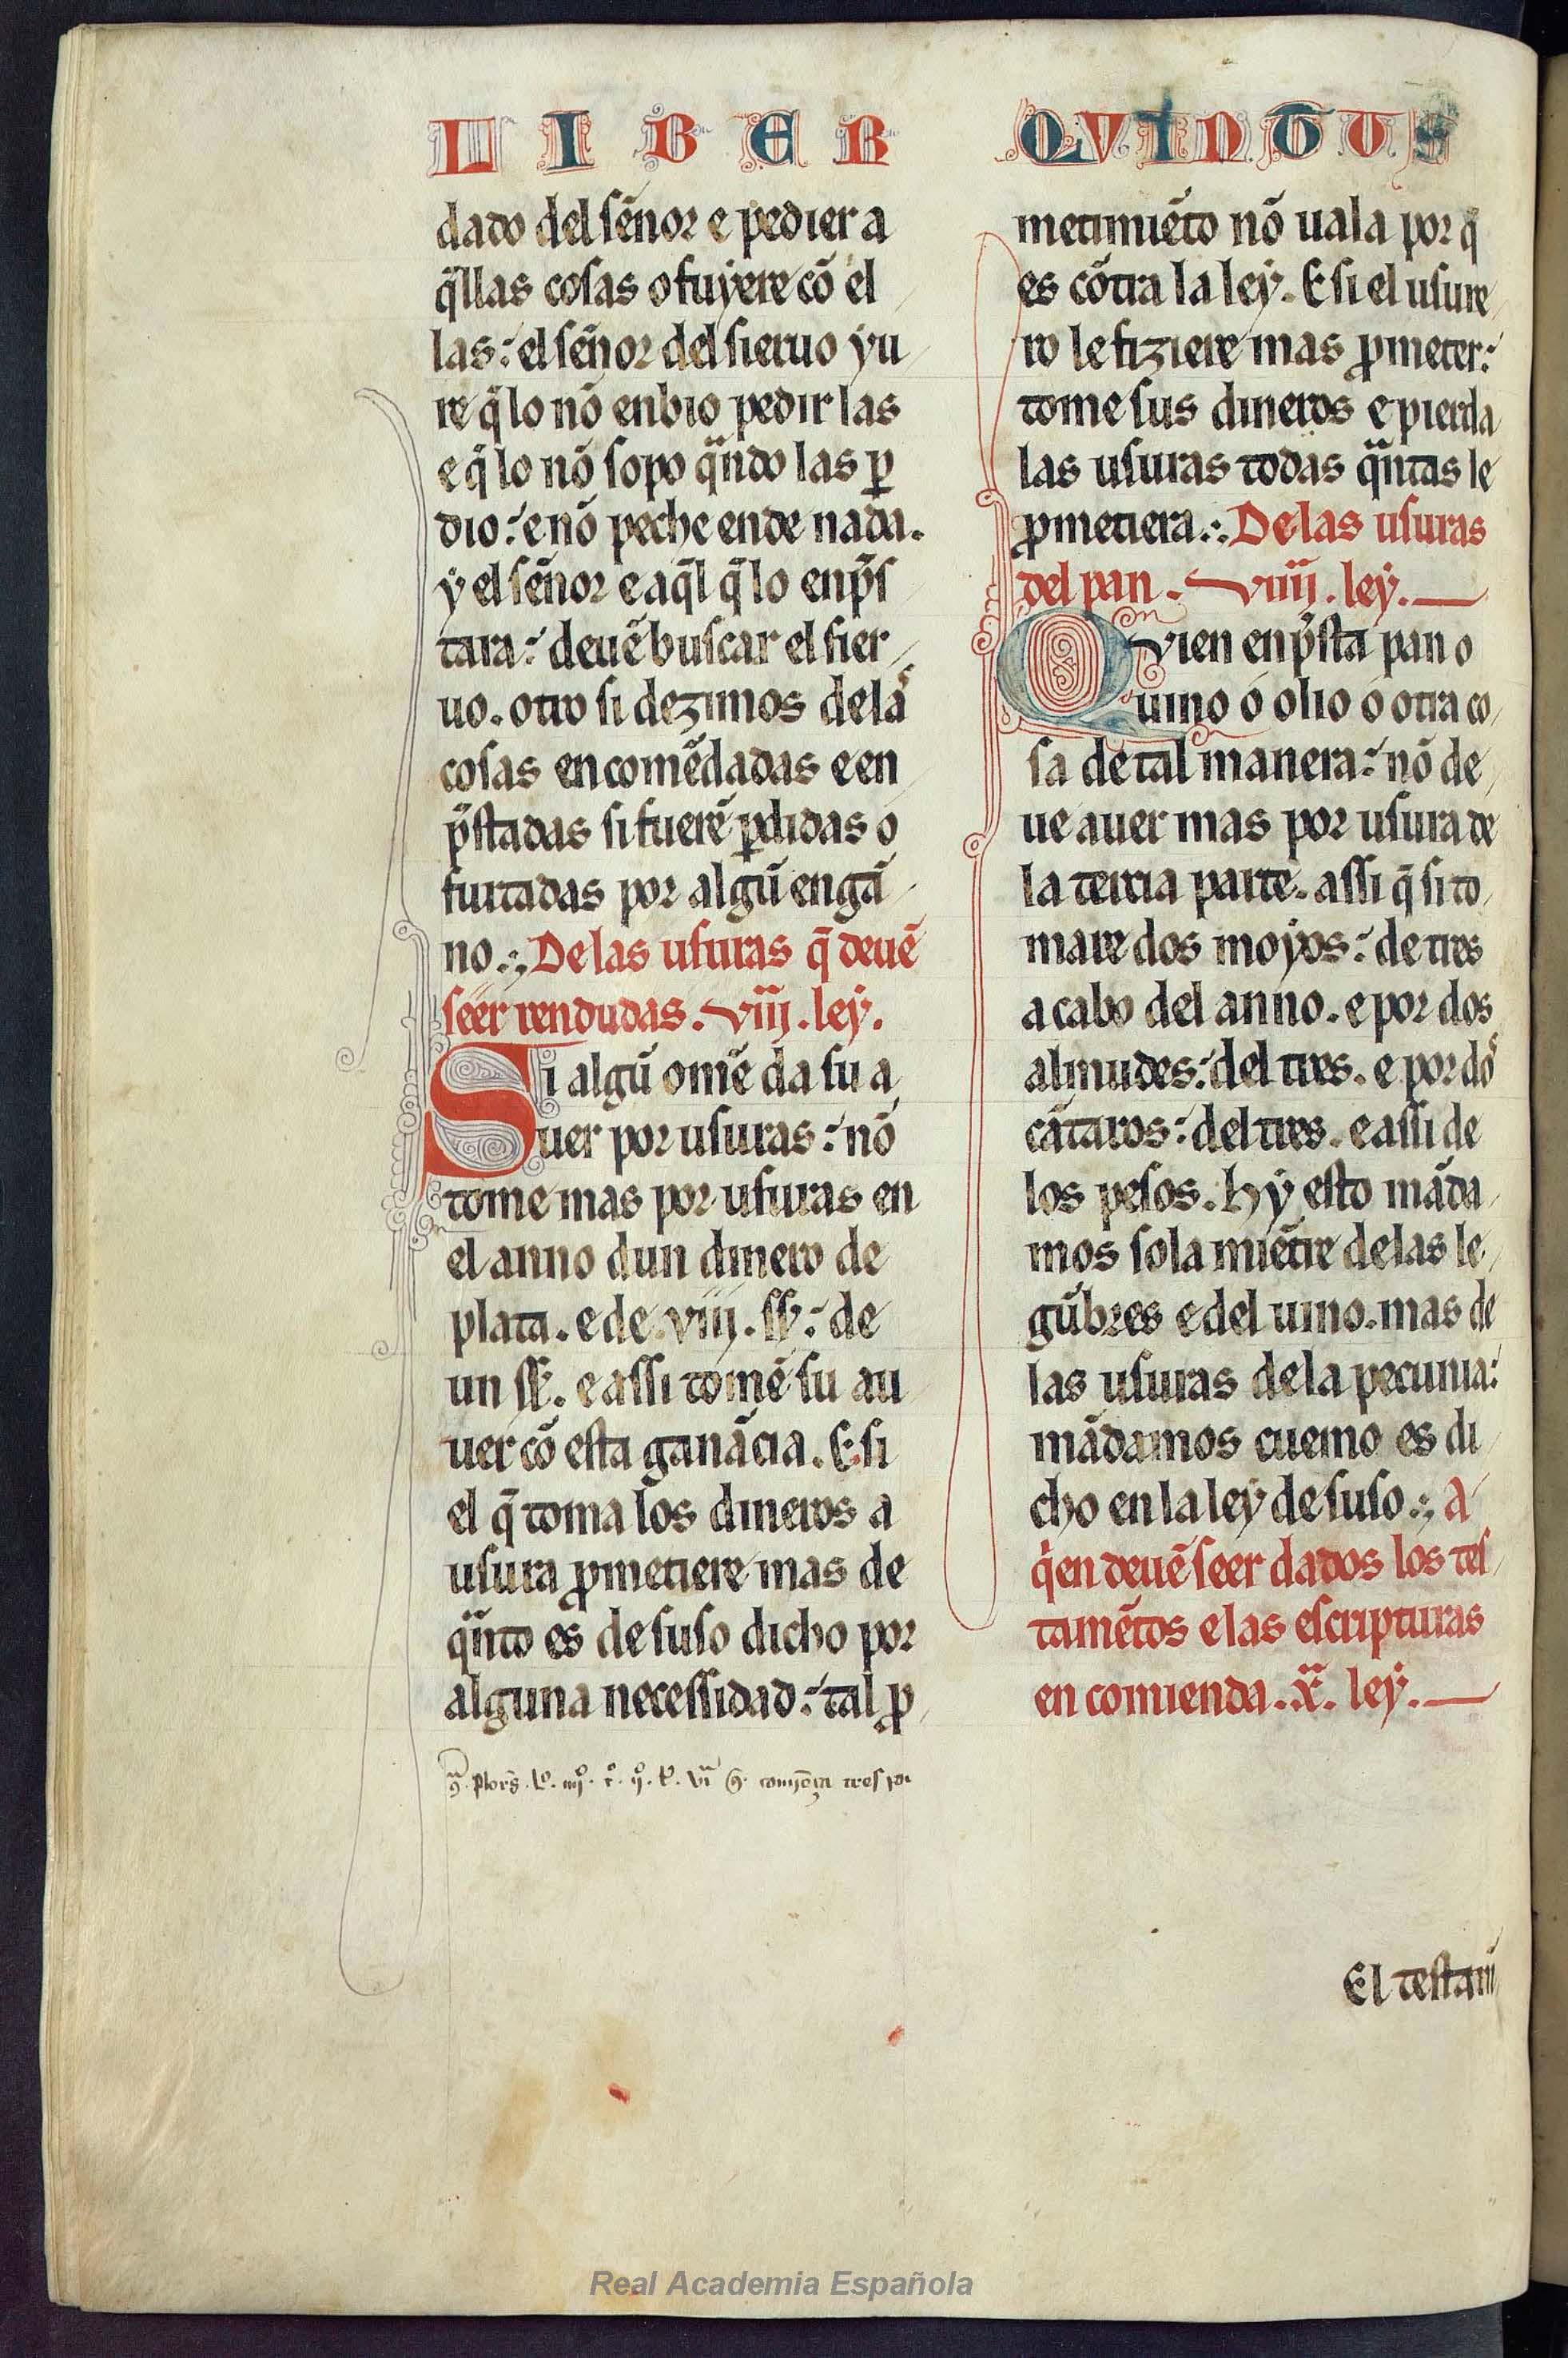 LIBER QVINTUS
dado del sẽnor e pediera
q̃llas cosas o fuẏere cõ el
las: el sẽnor del sieruo ẏu
re q̃ lo nõ enbio pedir las
e q̃ lo nõ sopo qũndo las ꝑ
dio: e nõ peche ende nada.
ẏ el sẽnor e aq̃l q̃ lo enp̃s
tara: deuẽ buscar el sier
uo. otro si dezimos de laˢ
cosas encomẽdadas e en
p̃stadas si fuerẽ ꝑdidas o
furtadas por algũ engã
no.:, De las usuras q̃ deuẽ
seer rendudas. viij. leẏ.
Si algũ omẽ da su a
uer por usuras: nõ
tome mas por usuras en
el anno dun dinero de
plata. e de .viij. ss̃: de
un ss̃. e assi tomẽ su au
uer cõ esta ganãcia. E si
el q̃ toma los dineros a
usura ꝓmetiere mas de
qũnto es de suso dicho por
alguna necessidad: tal ꝓ
metimiẽto nõ uala por q̃
es cõtra la leẏ. E si el usure
ro le fiziere mas ꝓmeter:
tome sus dineros e pierda
las usuras todas qũntas le
ꝓmetiera.:. De las usuras
del pan. viiij. leẏ.
Quien enp̃sta pan o
uino o olio o otra co
sa de tal manera: nõ de
ue auer mas por usura de
la tercia parte. assi q̃ si to
mare dos moẏos: de tres
a cabo del anno. e por dos
almudes: del tres. e por doˢ
cãtaros: del tres. e assi de
los pesos. Hẏ esto mãda
mos sola miẽtre de las le
gũbres e del uino. mas de
las usuras de la pecunia:
mãdamos cuemo es di
cho en la leẏ de suso.:, A
qⁱen deuẽ seer dados los tes
tamẽtos e las escripturas
en comienda. x. leẏ.
El testam̃
Real Academia Española